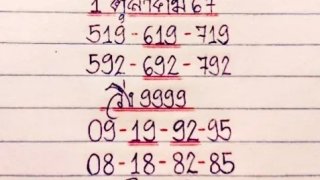 1 ตุลาคม 67
519-619-719
592-692-792
วิ่ง 9999
09-19-92-95
08-18-82-85